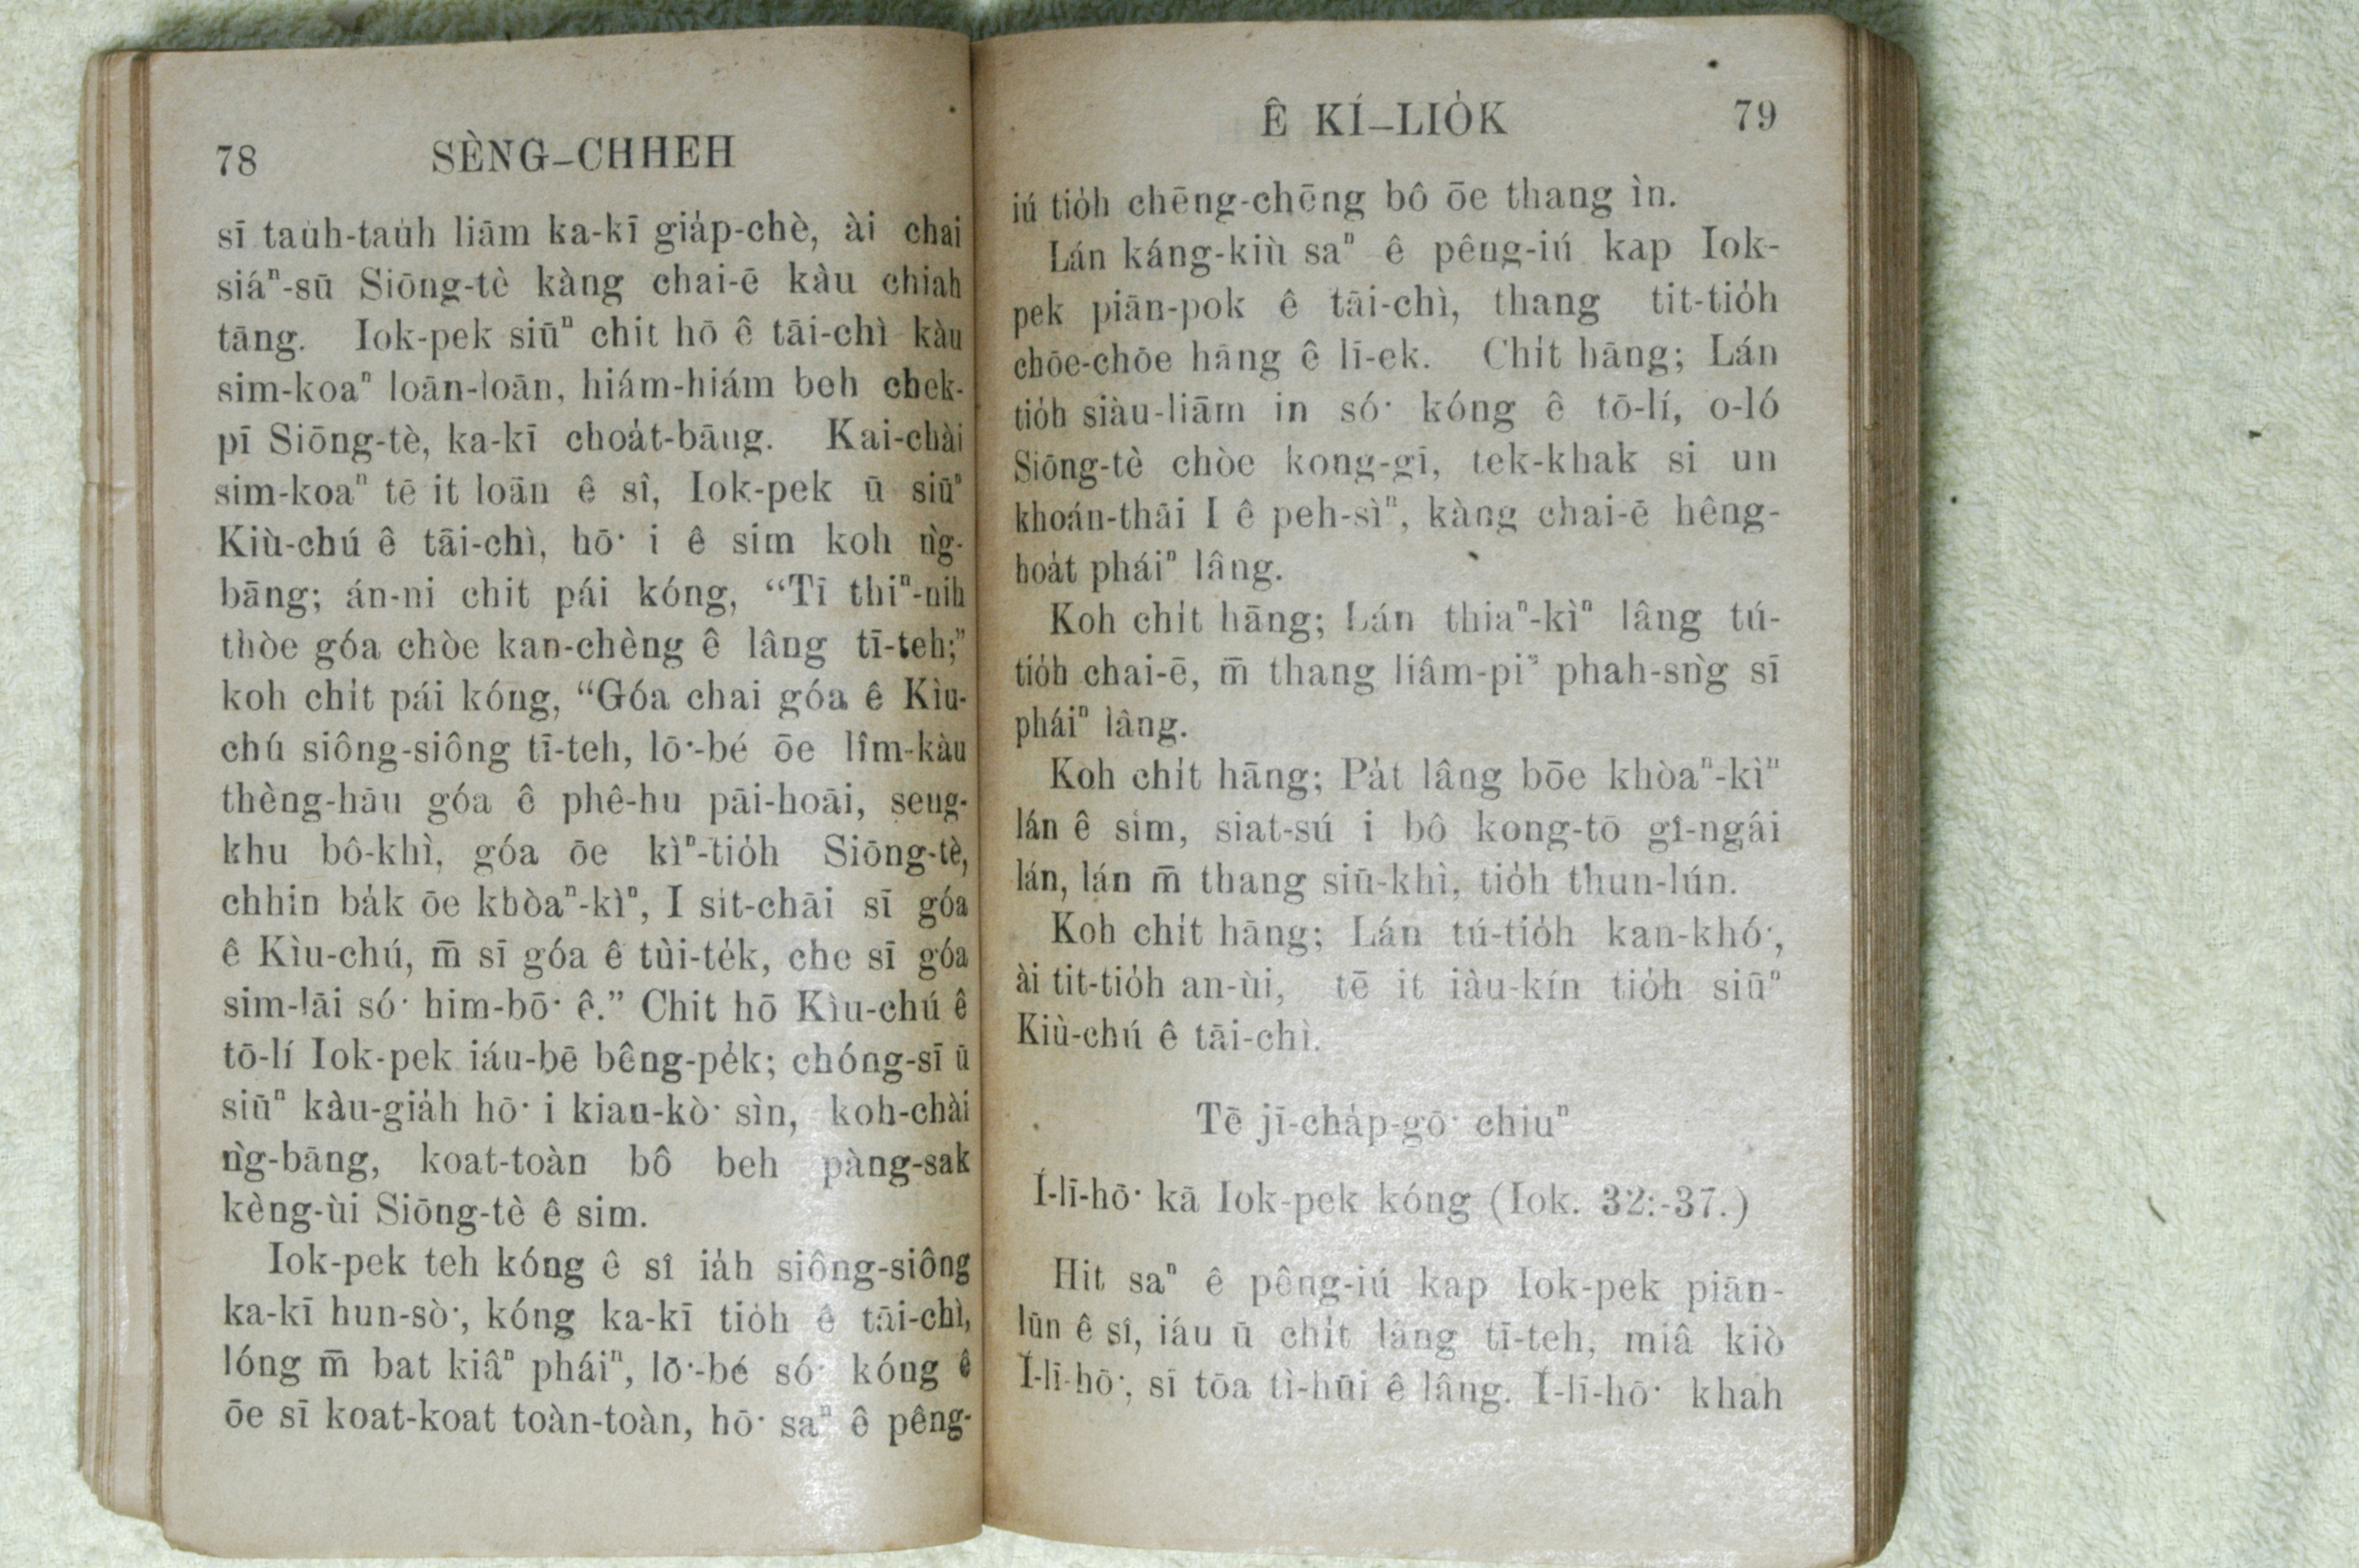 78 SÈNG-CHHEH
sī tau̍h-tau̍h liām ka-kī gia̍p-chè, ài chai
siáⁿ-sū Siōng-tè kàng chai-ē kàu chiah
tāng. Iok-pek siūⁿ chit hō ê tāi-chì kàu
sim-koaⁿ loān-loān, hiám-hiám beh chek-
pī Siōng-tè, ka-kī choa̍t-bāng. Kai-chài
sim-koaⁿ tē it loān ê sî, Iok-pek ū siūⁿ
Kiù-chú ê tāi-chì, hō͘ i ê sim koh ǹg-
bāng; án-ni chit pái kóng, “Tī thiⁿ-nih
thòe góa chòe kan-chèng ê lâng tī-teh;”
koh chi̍t pái kóng, “Góa chai góa ê Kìu-
chú siông-siông tī-teh, lō͘-bé ōe lîm-kàu
thèng-hāu góa ê phê-hu pāi-hoāi, seng-
khu bô-khì, góa ōe kìⁿ-tio̍h Siōng-tè,
chhin ba̍k ōe khòaⁿ-kìⁿ, I si̍t-chāi sī góa
ê Kìu-chú, m̄ sī góa ê tùi-te̍k, che sī góa
sim-lāi só͘ him-bō͘ ê.” Chit hō Kìu-chú ê
tō-lí Iok-pek iáu-bē bêng-pe̍k; chóng-sī ū
siūⁿ kàu-gia̍h hō͘ i kian-kò͘ sìn, koh-chài
ǹg-bāng, koat-toàn bô beh pàng-sak
kèng-ùi Siōng-tè ê sim.
Iok-pek teh kóng ê sî ia̍h siông-siông
ka-kī hun-sò͘, kóng ka-kī tio̍h ê tāi-chì,
lóng m̄ bat kiâⁿ pháiⁿ, lō͘-bé só͘ kóng ê
ōe sī koat-koat toàn-toàn, hō͘ saⁿ ê pêng-
Ê KÍ-LIO̍K 79
iú tio̍h chēng-chēng bô ōe thang ìn.
Lán káng-kiù saⁿ ê pêng-iú kap Iok-
pek piān-pok ê tāi-chì, thang tit-tio̍h
chōe-chōe hāng ê lī-ek. Chi̍t hāng; Lán
tio̍h siàu-liām in só͘ kóng ê tō-lí, o-ló
Siōng-tè chòe kong-gī, tek-khak si un
khoán-thāi I ê peh-sìⁿ, kàng chai-ē hêng-
hoa̍t pháiⁿ lâng.
Koh chi̍t hāng; Lán thiaⁿ-kìⁿ lâng tú-
tio̍h chai-ē, m̄ thang liâm-piⁿ phah-sǹg sī
pháiⁿ lâng.
Koh chi̍t hāng; Pa̍t lâng bōe khòaⁿ-kìⁿ
lán ê sim, siat-sú i bô kong-tō gî-ngái
lán, lán m̄ thang siū-khì, tio̍h thun-lún.
Koh chi̍t hāng; Lán tú-tio̍h kan-khó͘,
ài tit-tio̍h an-ùi, tē it iàu-kín tio̍h siūⁿ
Kiù-chú ê tāi-chì.
Tē jī-cha̍p-gō͘ chiuⁿ
Í-lī-hō͘ kā Iok-pek kóng (Iok. 32:-37.)
Hit saⁿ ê pêng-iú kap Iok-pek piān-
lūn ê sî, iáu ū chi̍t lâng tī-teh, miâ kiò
Í-lī-hō͘, sī tōa tì-hūi ê lâng. Í-lī-hō͘ khah